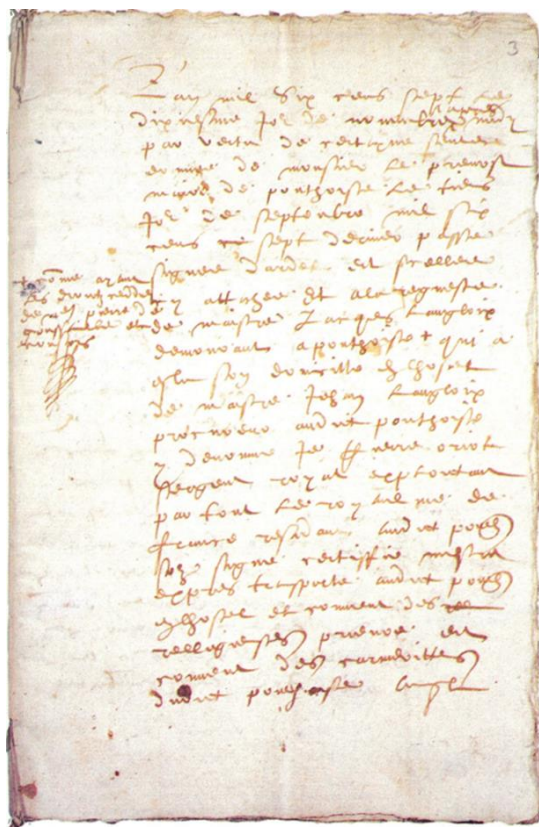 3
L'an mil six cens sept le
dixiesme Jor de novembre apres midy
par vertu de certayne sentence
donnee de monsieur le prevost
maire de ponthoise le tiers
Jor de septembre mil six
cens et sept dernier passe
signee dardel et scellee
cy attachee Et a la requeste
de maistre Jacques Langloix
demeurant a ponthoise + qui a
esleu son domicille en lhostel
de maistre Jehan Langloix
procureur audict ponthoise
y denomme Je pierre oriot
sergent royal exploictant
par tout le royaulme de
france residant audict ponth
soubz signe certiffie mestre
expres transporte audict ponth
en lhostel et couvent des
relligieuses prieure et
couvent des carmelittes
dudict ponthoise
+ comme ayant
les droictz ceddez
de me pierre de